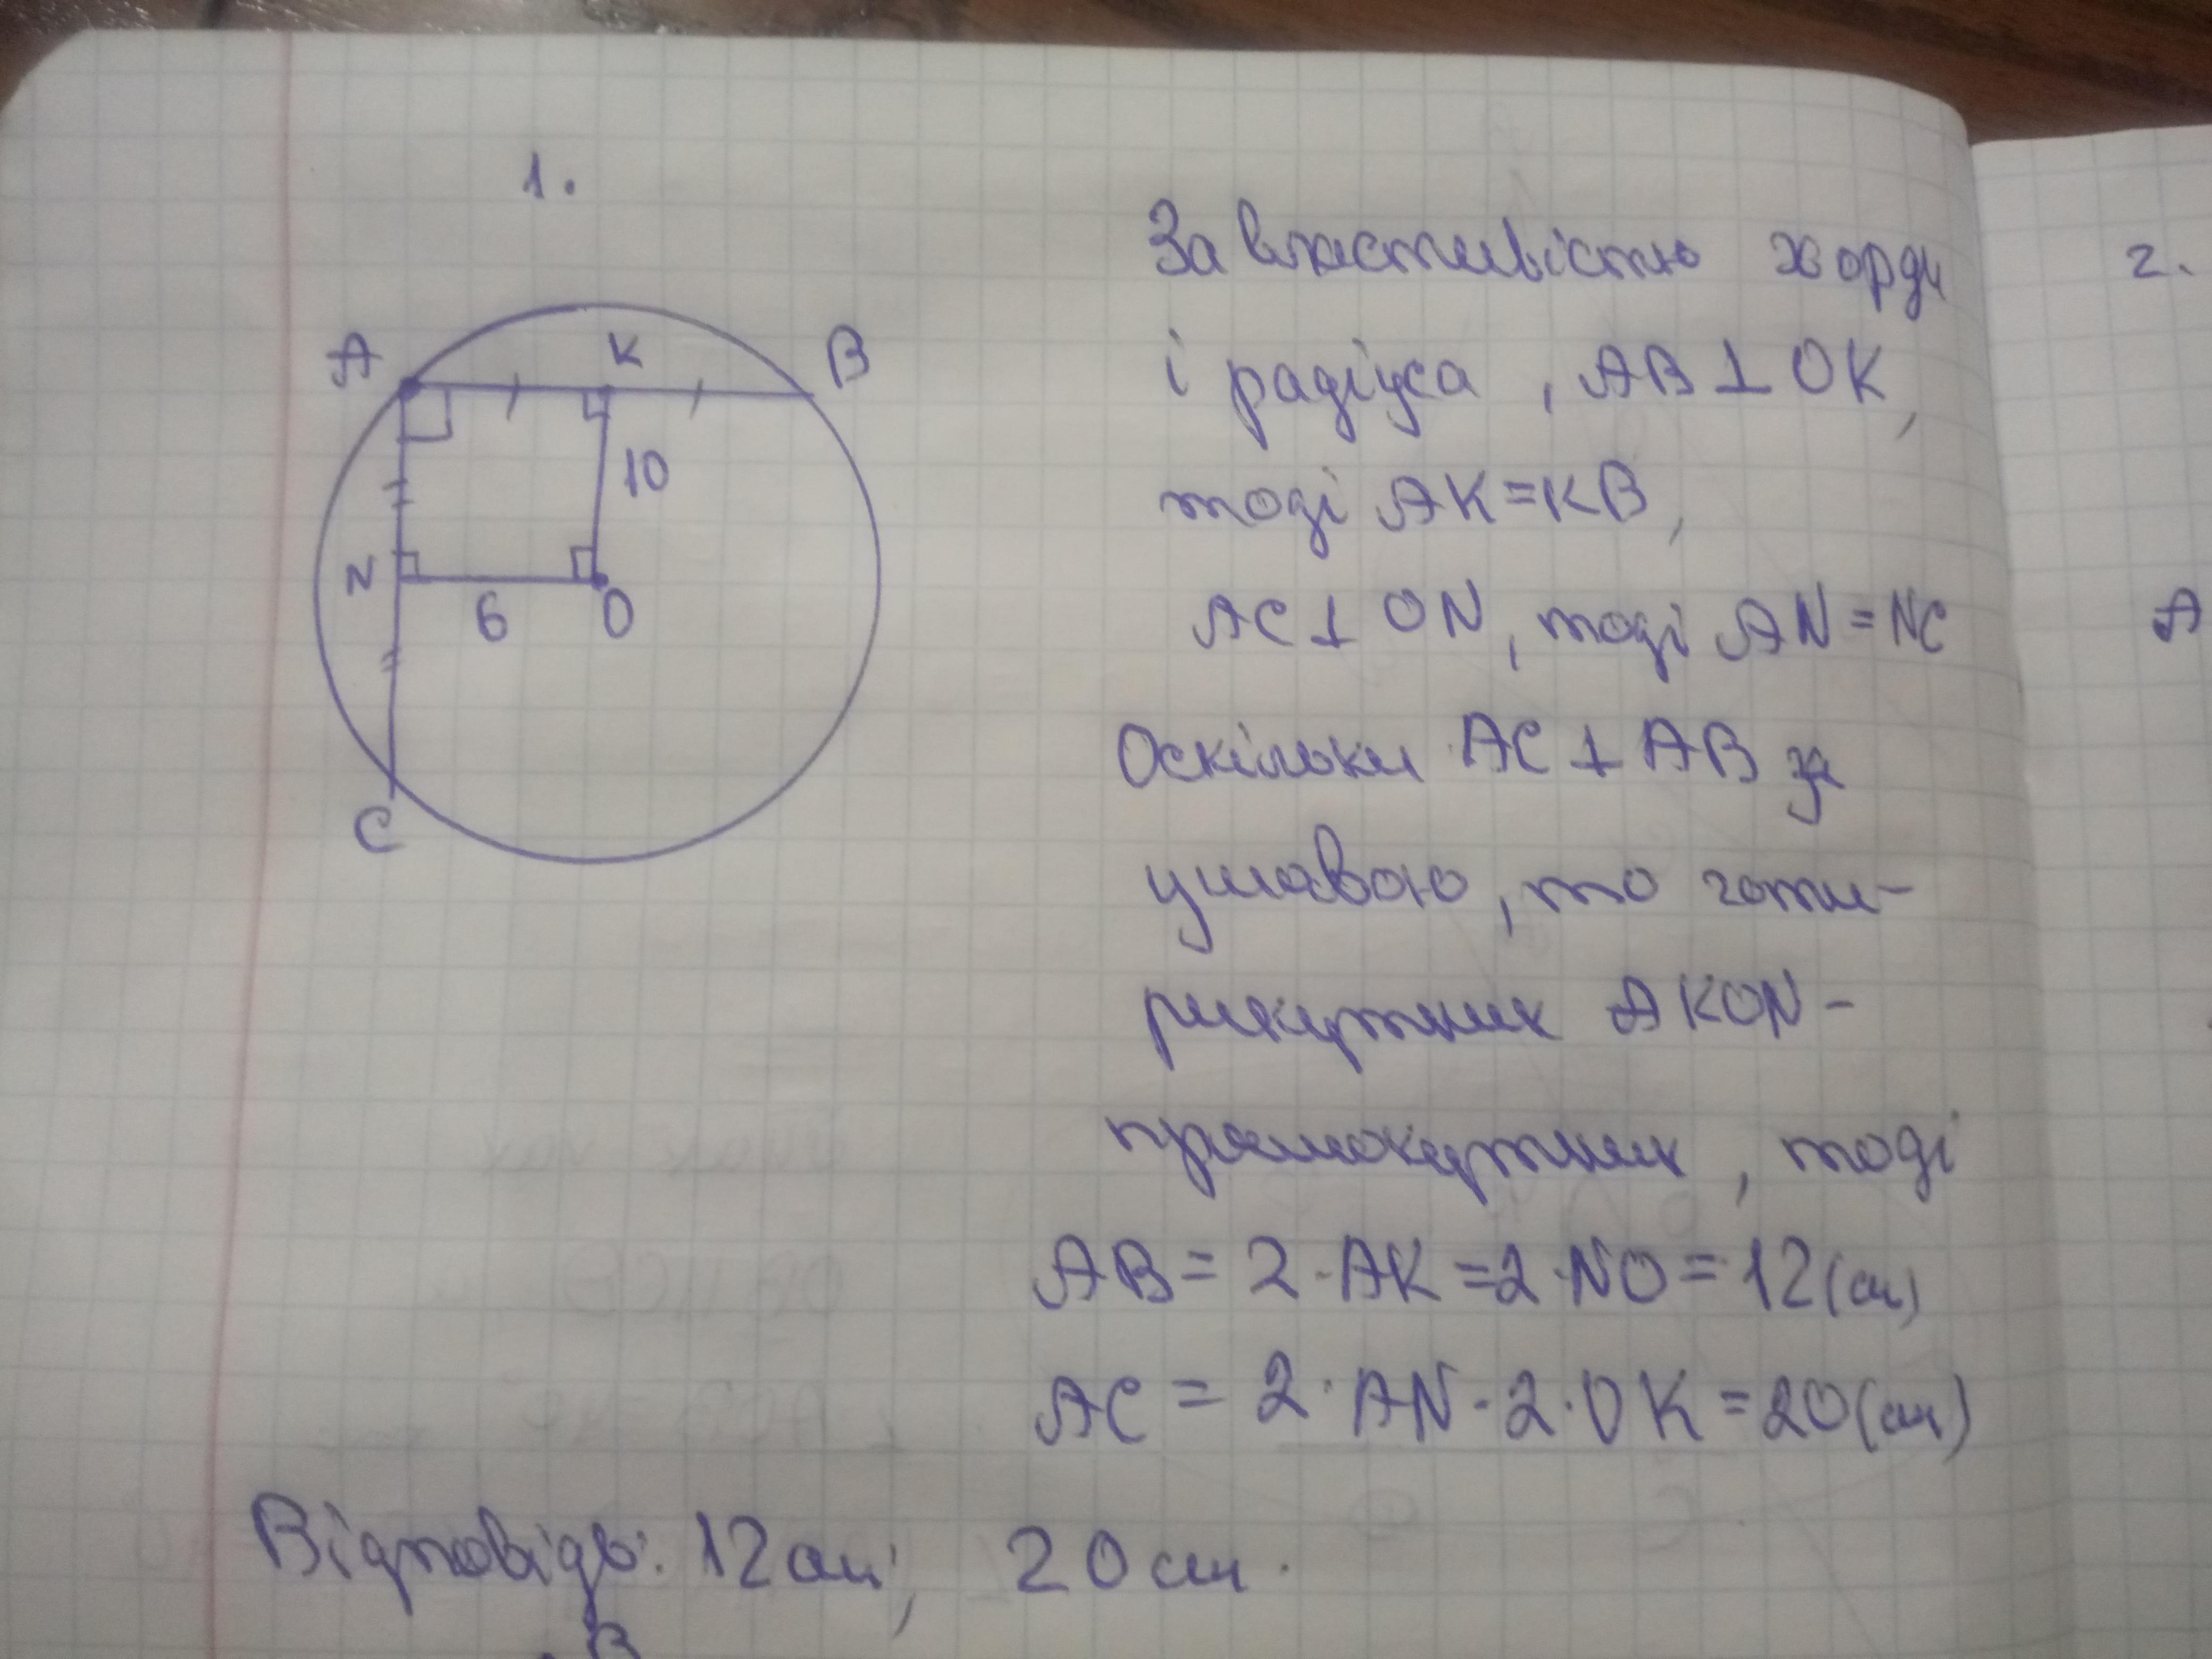 1.
A K B
10
N 6 O
C
За властивістю хорди
і радіуса, AB⊥OK,
тоді AK=KB,
AC⊥ON, тоді AN=NC
Оскільки AC⊥AB за
умовою, то чоти-
рикутник AKON-
прямокутник, тоді
AB=2·AK=2·NO=12(см)
AC=2·AN-2·OK=20(см)
Відповідь: 12см; 20см.
B
2.
A